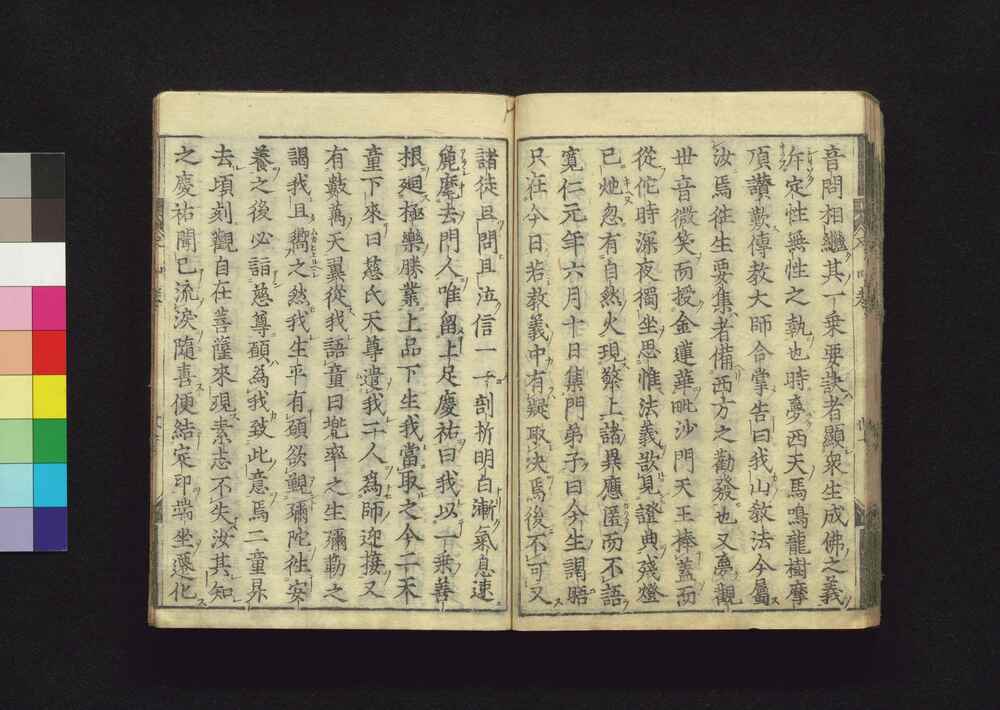 音問相繼其一乗要訣者顯衆生成佛之義
斥定性無性之執也時夢西天馬鳴龍樹摩
頂讃歎傳教大師合掌告曰我山教法今屬
汝焉徃生要集者備西方之勸發也又夢觀
世音微笑而授金蓮華毗沙門天王捧蓋而
從侘時深夜獨坐思惟法義欲見證典殘燈
已灺忽有自然火現祭上諸異應匿而不語
寛仁元年六月十日集門弟子曰今生謁晤
只在今日若教義中有疑取决焉後不可又
諸徒且問且泣信一一剖折明白漸氣息速
麾去門人唯留上足慶祐曰我以一乘善
根廻極樂勝業上品下生我當取之今二天
童下來曰慈氏天尊遣我二人爲師迎接又
有數萬天翼從我語童曰兜率之生彌勒之
謁我且嚮之然我生平有碩欲覲彌陀徃安
養之後必詣慈尊碩為我致此意焉二童昇
去頃刻觀自在菩薩來現素志不失汝其知
之慶祐聞已流涙隨喜便結定印端坐遷化